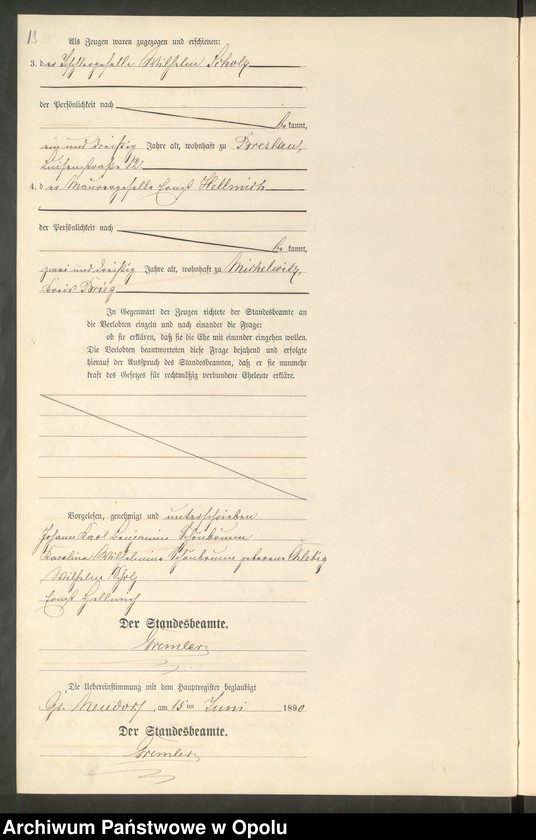 13
Als Zeugen waren zugezogen und erschienen:
3. der Tischlergeselle Wilhelm Scholz
der Persönlichkeit nach
be kannt,
ein und dreißig Jahre alt, wohnhaft zu Breslau,
12.
4. der Maurergeselle Ernst Hellmich
der Persönlichkeit nach
be kannt,
zwei und dreißig Jahre alt, wohnhaft zu Michelwitz,
Kreis Brieg
In Gegenwart der Zeugen richtete der Standesbeamte an
die Verlobten einzeln und nach einander die Frage:
ob sie erklären, daß sie die Ehe mit einander eingehen wollen.
Die Verlobten beantworteten diese Frage bejahend und erfolgte
hierauf der Ausspruch des Standesbeamten, daß er sie nunmehr
kraft des Gesetzes für rechtmäßig verbundene Eheleute erkläre.
Vorgelesen, genehmigt und unterschrieben
Johann Karl Benjamin Schönbrunn
Karoline Wilhelmine Schönbrunn geborene
Wilhelm Scholz
Ernst Hellmich
Der Standesbeamte.
Gremler
Die Uebereinstimmung mit dem Hauptregister beglaubigt
Gr. Neudorf, am 15ten Juni 1890
Der Standesbeamte.
Gremler
Archiwum Państwowe w Opolu